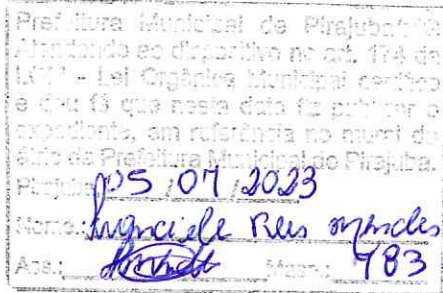 Prefeitura Municipal de Pirajuba
Atendendo ao dispositivo no art. 174 da
- Lei Orgânica Municipal
e dou fé que nesta data fiz publicar o
expediente, em referência no mural do
da Prefeitura Municipal de Pirajuba.
Pirajuba 05/07/2023
Nome: Reis Mendes
Ass.: 783